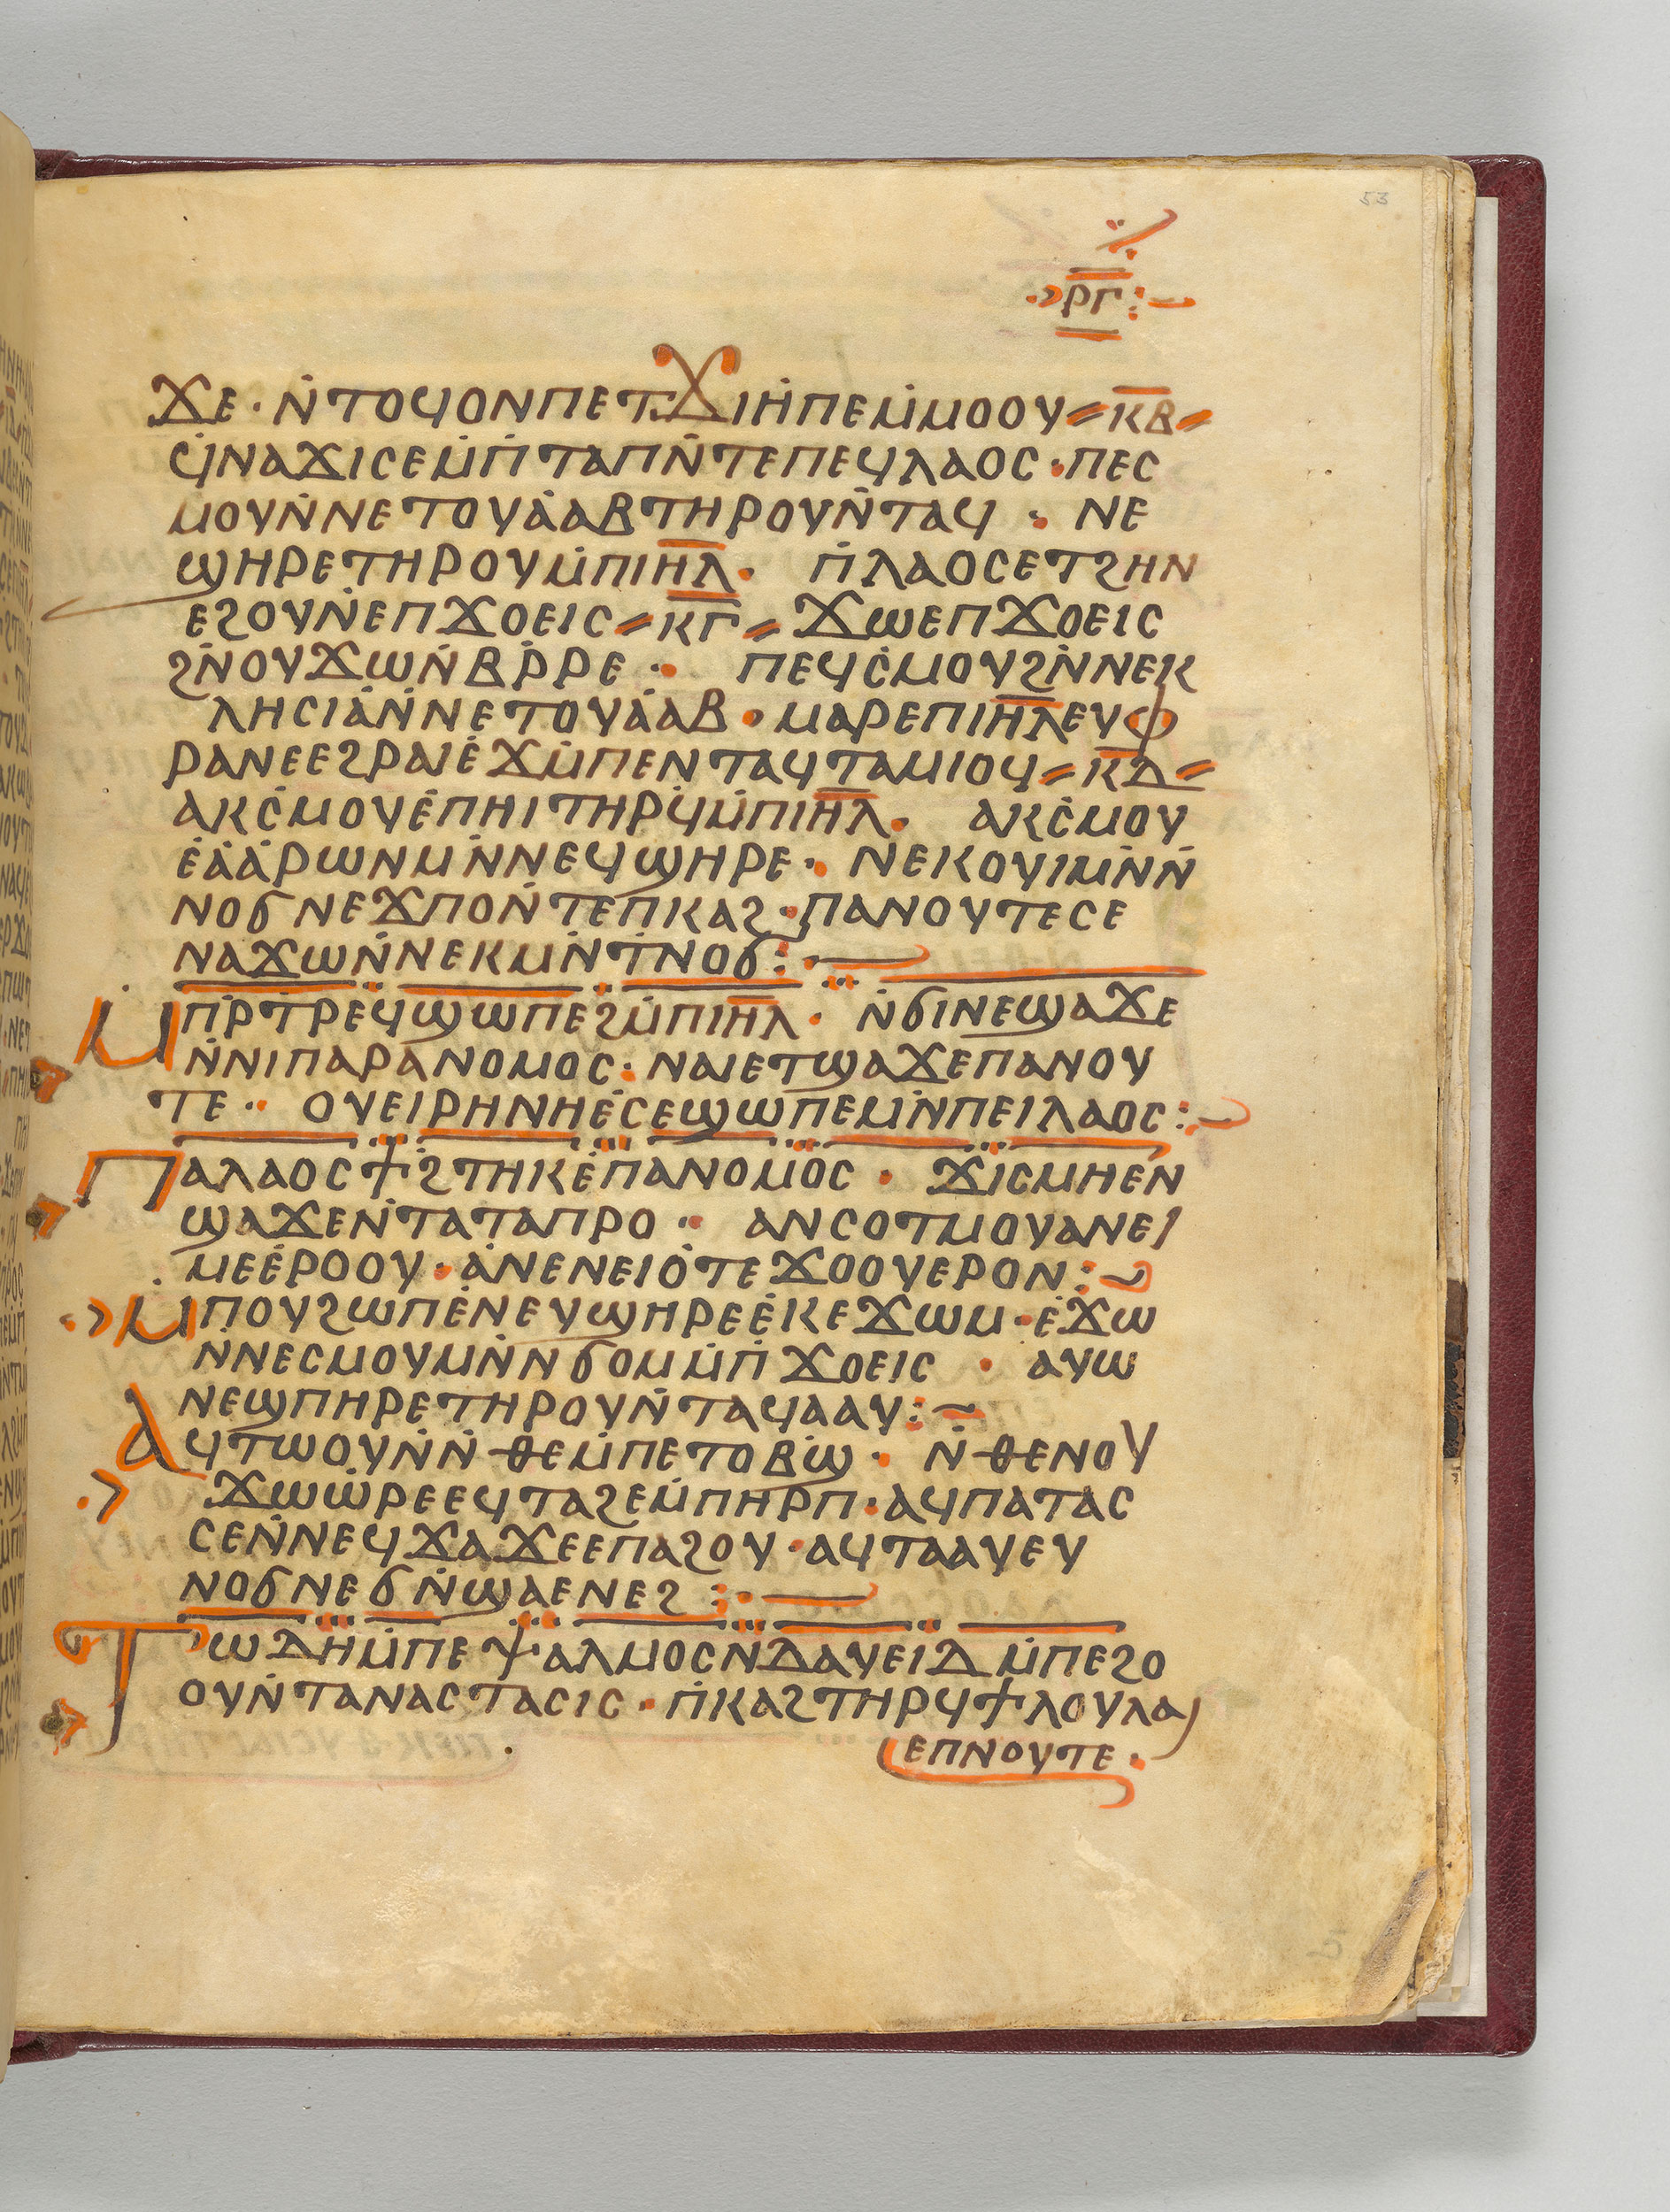 53
ⲣⲅ
ϫⲉ · ⲛ̇ⲧⲟϥⲟⲛⲡⲉⲧϫⲓⲙ̇ⲡⲉⲙ̇ⲙⲟⲟⲩ ⲕ̅ⲃ̅
ϥ̇ⲛⲁϫⲓⲥⲉⲙ̇ⲡ̇ⲧⲁⲡⲛ̇ⲧⲉⲡⲉϥⲗⲁⲟⲥ · ⲡⲉⲥ
ⲙⲟⲩⲛ̇ⲛⲉⲧⲟⲩⲁ̇ⲁⲃⲧⲏⲣⲟⲩⲛ̇ⲧⲁϥ · ⲛⲉ
ϣⲏⲣⲉⲧⲏⲣⲟⲩⲙ̇ⲡⲓⲏ̅ⲗ̅ · ⲡ̇ⲗⲁⲟⲥⲉⲧϩⲏⲛ
ⲉϩⲟⲩⲛ̇ⲉⲡϫⲟⲉⲓⲥ ⲕ̅ⲅ̅ ϫⲱⲉⲡϫⲟⲉⲓⲥ
ϩⲛ̇ⲟⲩϫⲱⲛ̇ⲃⲣ̇ⲣⲉ · ⲡⲉϥⲥ̇ⲙⲟⲩϩⲛ̇ⲛⲉⲕ
ⲗⲏⲥⲓⲁ̇ⲛ̇ⲛⲉⲧⲟⲩⲁ̇ⲁⲃ · ⲙⲁⲣⲉⲡⲓⲏ̅ⲗ̅ⲉⲩⲫ
ⲣⲁⲛⲉⲉϩⲣⲁⲓⲉ̇ϫⲙ̇ⲡⲉⲛⲧⲁϥⲧⲁⲙⲓⲟϥ ⲕ̅ⲇ̅
ⲁⲕⲥ̇ⲙⲟⲩⲉ̇ⲡⲏⲓⲧⲏⲣϥ̇ⲙ̇ⲡⲓⲏ̅ⲗ̅ · ⲁⲕⲥ̇ⲙⲟⲩ
ⲉ̇ⲁ̇ⲁ̇ⲣⲱⲛⲙⲛ̇ⲛⲉϥϣⲏⲣⲉ · ⲛⲉⲕⲟⲩⲓⲙⲛ̇ⲛ̇
ⲛⲟϭⲛⲉϫⲡⲟⲛ̇ⲧⲉⲡⲕⲁϩ · ⲡⲁⲛⲟⲩⲧⲉⲥⲉ
ⲛⲁϫⲱⲛ̇ⲛⲉⲕⲙⲛ̇ⲧ̇ⲛⲟϭ :
ⲙ̇ⲡⲣ̇ⲧ̇ⲣⲉϥϣⲱⲡⲉϩⲙ̇ⲡⲓⲏ̅ⲗ̅ · ⲛ̇ϭⲓⲛⲉϣⲁϫⲉ
ⲛ̇ⲛⲓⲡⲁⲣⲁⲛⲟⲙⲟⲥ · ⲛⲁⲓⲉⲧϣⲁϫⲉⲡⲁⲛⲟⲩ
ⲧⲉ · ⲟⲩⲉⲓⲣⲏⲛⲏⲉ̇ⲥⲉϣⲱⲡⲉⲙⲛ̇ⲡⲉⲓⲗⲁⲟⲥ :
ⲡⲁⲗⲁⲟⲥϯϩⲧⲏⲕⲉ̇ⲡⲁⲛⲟⲙⲟⲥ · ϫⲓⲥⲙⲏⲉⲛ
ϣⲁϫⲉⲛ̇ⲧⲁⲧⲁⲡⲣⲟ · ⲁⲛⲥⲟⲧⲙⲟⲩⲁⲛⲉⲓ
ⲙⲉⲉ̇ⲣⲟⲟⲩ · ⲁ̇ⲛⲉⲛⲉⲓⲟ̇ⲧⲉϫⲟⲟⲩⲉⲣⲟⲛ :
ⲙ̇ⲡⲟⲩϩⲱⲡⲉ̇ⲛⲉⲩϣⲏⲣⲉⲉ̇ⲕⲉϫⲱⲙ · ⲉ̇ϫⲱ
ⲛ̇ⲛⲉⲥⲙⲟⲩⲙⲛ̇ⲛϭⲟⲙⲙ̇ⲡ̇ϫⲟⲉⲓⲥ · ⲁⲩⲱ
ⲛⲉϣⲡⲏⲣⲉⲧⲏⲣⲟⲩⲛ̇ⲧⲁϥⲁⲁⲩ :
ⲁϥⲧⲱⲟⲩⲛ̇ⲛ̇ⲑⲉⲙ̇ⲡⲉⲧⲟⲃϣ̇ · ⲛ̇ⲑⲉⲛⲟⲩ
ϫⲱⲱ̇ⲣⲉⲉϥⲧⲁϩⲉⲙ̇ⲡⲏⲣⲡ · ⲁϥⲡⲁⲧⲁⲥ
ⲥⲉⲛ̇ⲛⲉϥϫⲁϫⲉⲉⲡⲁϩⲟⲩ · ⲁϥⲧⲁⲁⲩⲉⲩ
ⲛⲟϭⲛⲉϭⲛ̇ϣⲁⲉⲛⲉϩ :
ⲧⲱⲇⲏⲙ̇ⲡⲉⲯⲁⲗⲙⲟⲥⲛ̇ⲇⲁⲩⲉⲓⲇⲙ̇ⲡⲉϩⲟ
ⲟⲩⲛ̇ⲧⲁⲛⲁⲥⲧⲁⲥⲓⲥ · ⲡ̇ⲕⲁϩⲧⲏⲣϥϯⲗⲟⲩⲗⲁⲓ
ⲉⲡⲛⲟⲩⲧⲉ ·